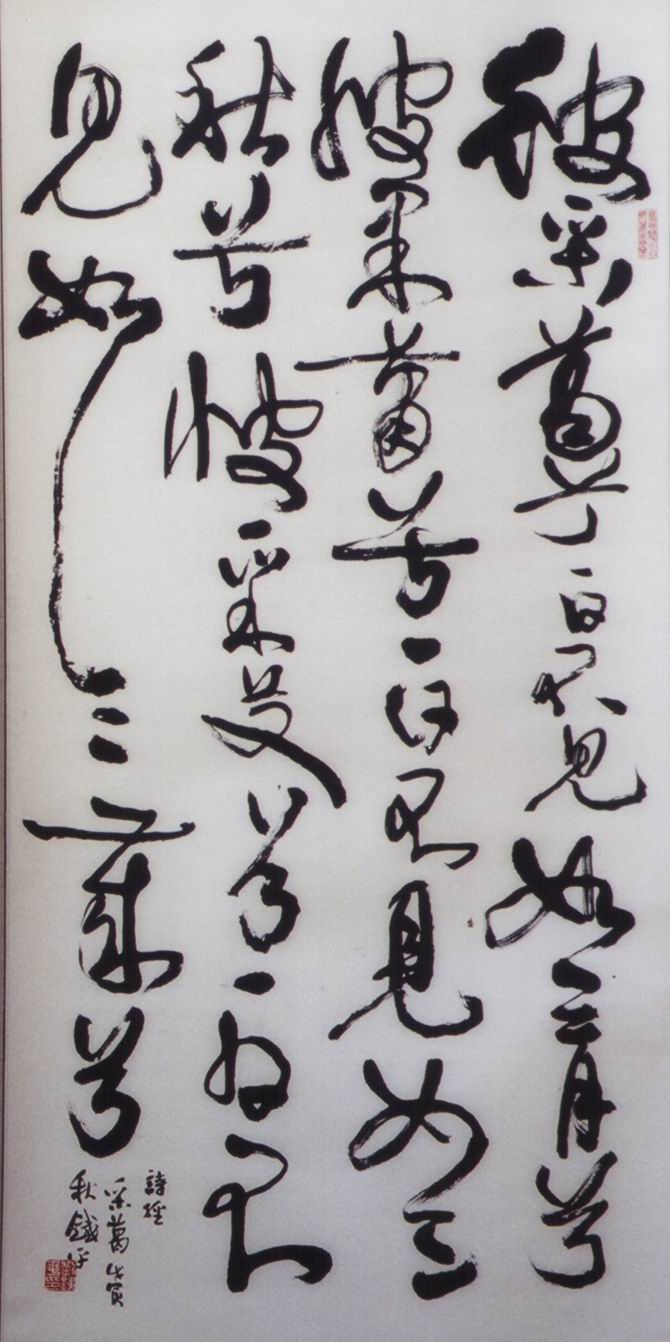 彼采葛兮一日不見如三月兮
彼采蕭兮一日不見如三
秋兮彼采艾兮一日不
見如三歲兮
詩經
采葛戊寅
秋鐵平